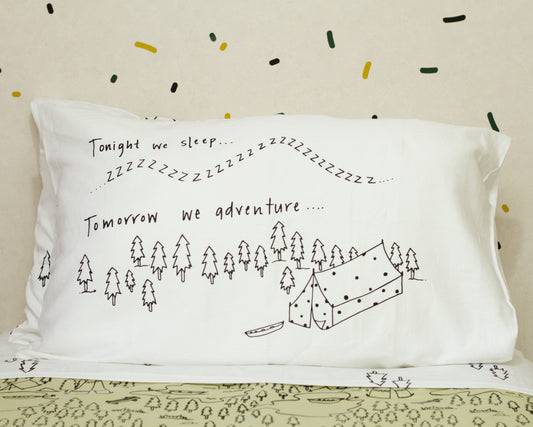 Tonight we sleep...
...zzzzzzzzzzzzzzzzzzzzzzzzzzzzzz....
Tomorrow we adventure....